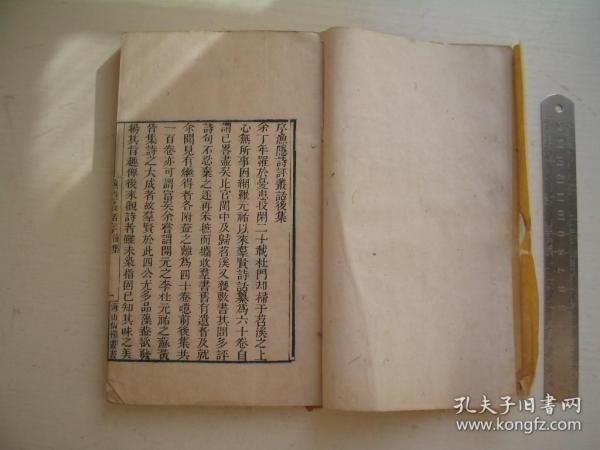 序漁隱詩評叢話後集
余丁年罹於憂患投閑二十載杜門却掃于苕溪之上
心無所事因網羅元祐以來羣賢詩話纂為六十卷自
謂已畧盡矣比官閩中及歸苕溪又獲數書其間多評
詩句不忍棄之遂再采摭而繼收羣書舊有遺者及就
余聞見有繼得者各附益之離為四十卷遂前後集共
一百卷亦可謂富矣余嘗謂開元之李杜元祐之蘇黃
皆集詩之大成者故羣賢於此四公尤多品藻蓋欲發
揚其旨趣俾後來觀詩者雖未染指固已知其味之美
孔夫子旧书网
www.kongfz.com